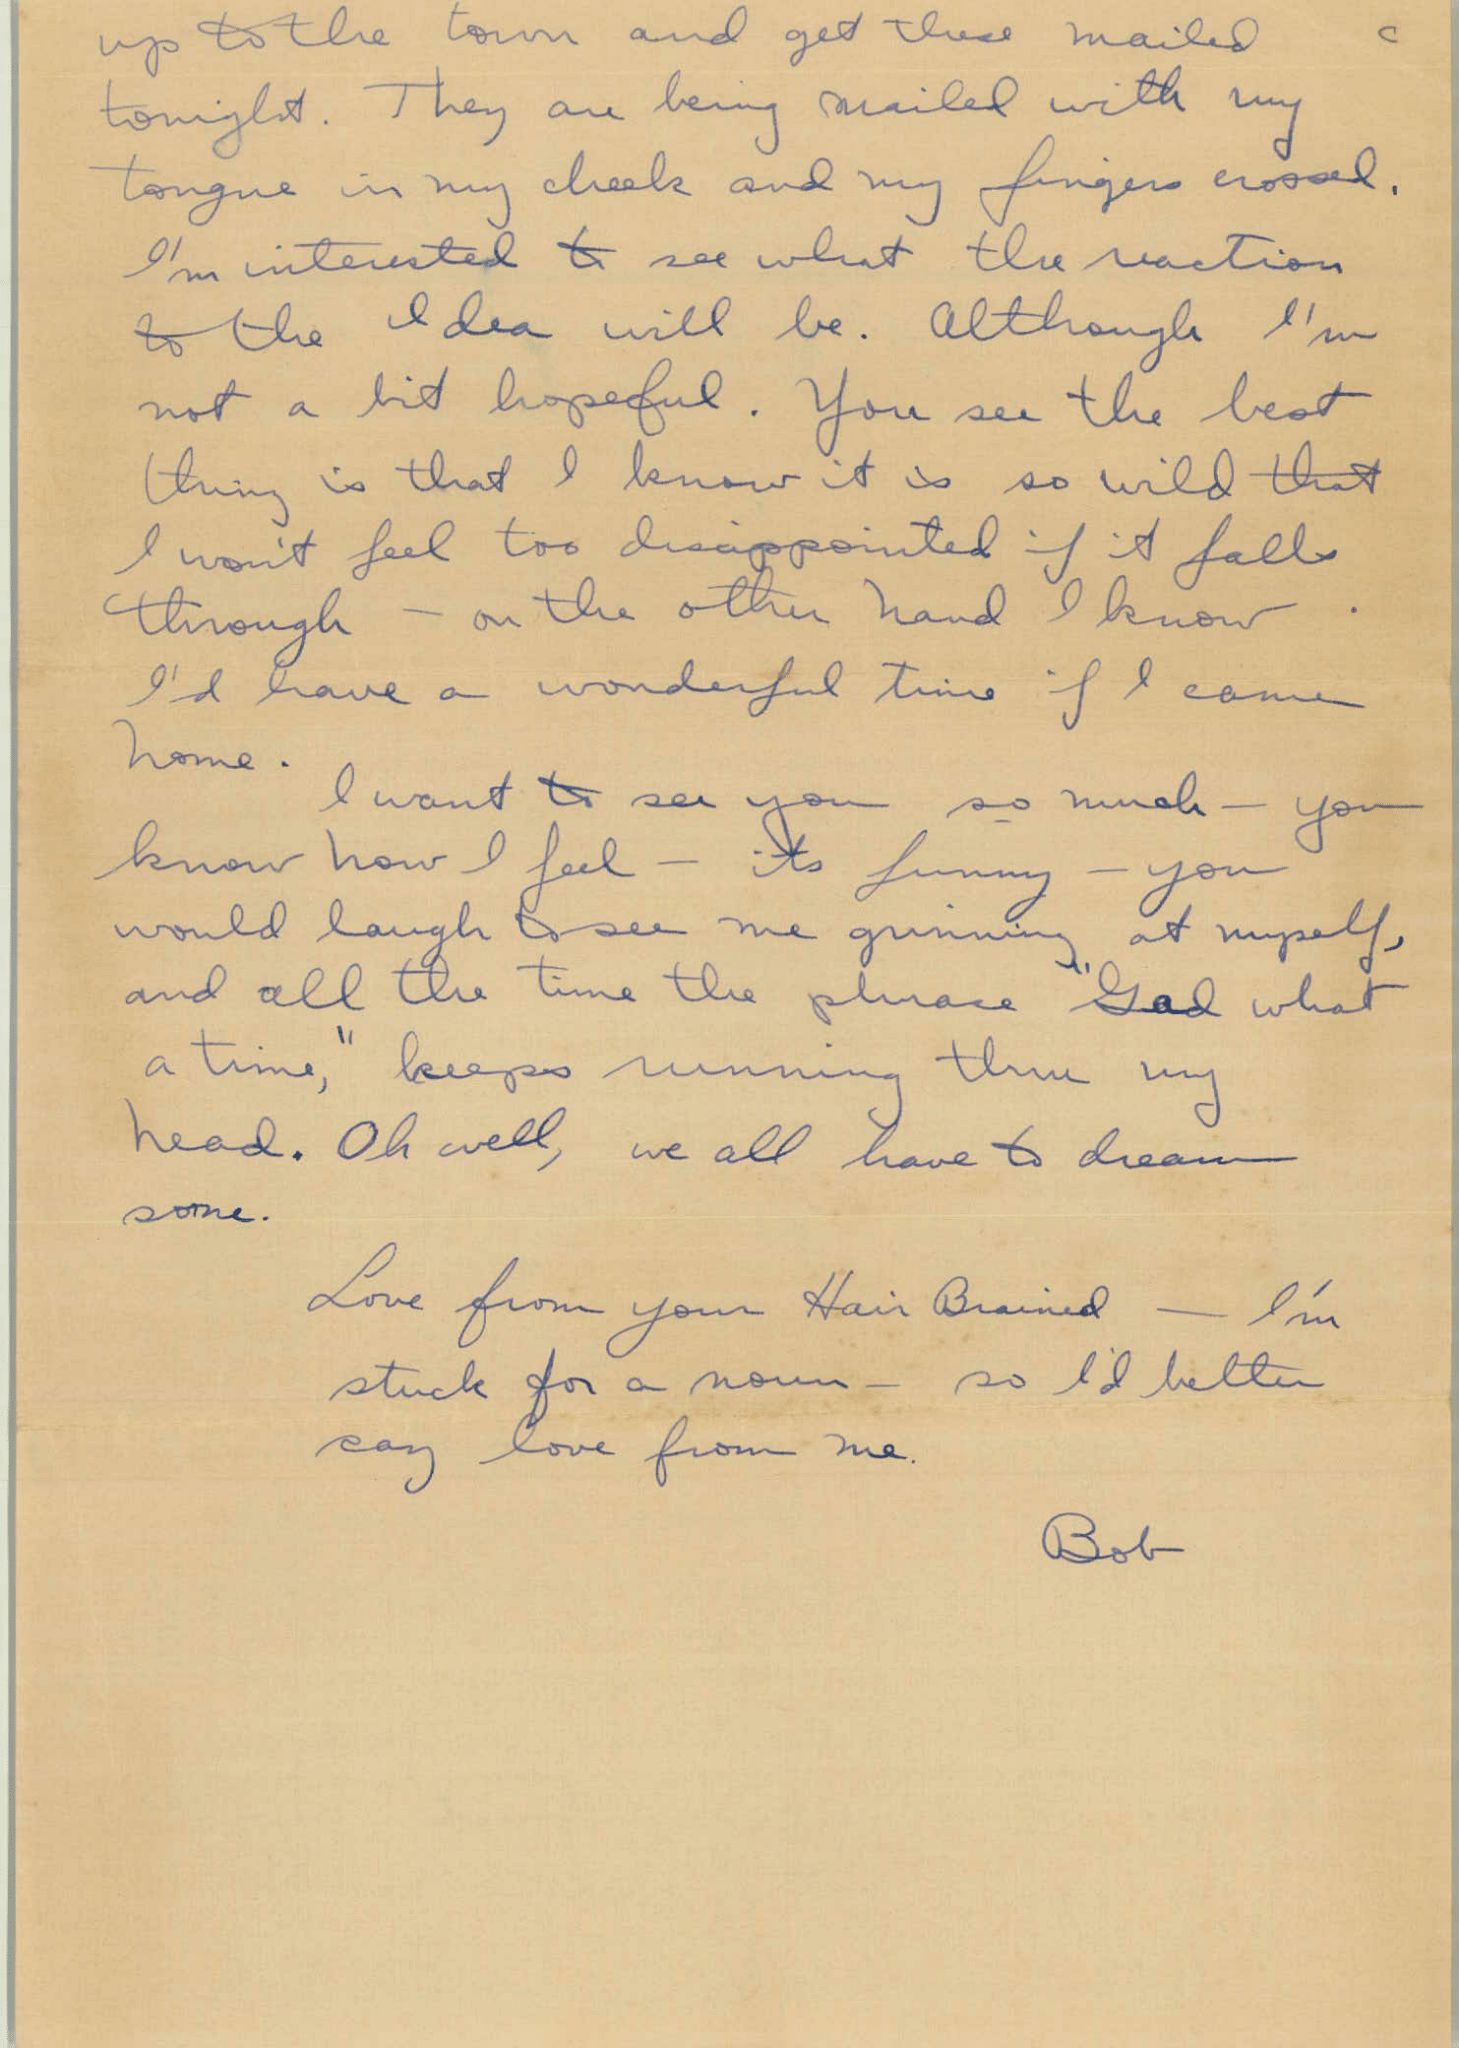 up to the town and get these mailed
tonight. They are being mailed with my
tongue in my cheek and my fingers crossed.
I'm interested to see what the reaction
to the Idea will be. Although I'm
not a bit hopeful. You see the best
thing is that I know it is so wild that
I won't feel too disappointed if it falls
through – on the other hand I know
I'd have a wonderful time if I came
home.
I want to see you so much – you
know how I feel – its funny – you
would laugh to see me grinning at myself,
and all the time the phrase "Gad what
a time," keeps running thru my
head. Oh well, we all have to dream
some.
Love from your Hair Brained – I'm
stuck for a noun – so I'd better
say love from me.
Bob